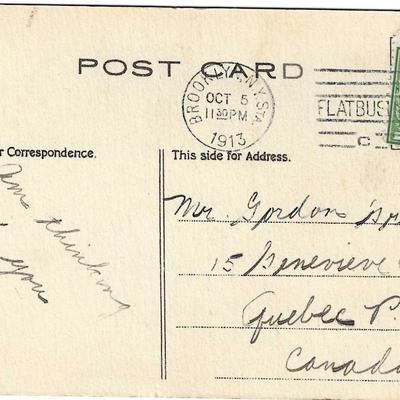 POST CARD
BROOKLYN, N.Y. STA.
OCT 5
11 30 PM
1913
FLATBUS
C
r Correspondence.
This side for Address.
Am thinking
you
Mr. Gordon
15 Genevieve
Quebec P.
Canada